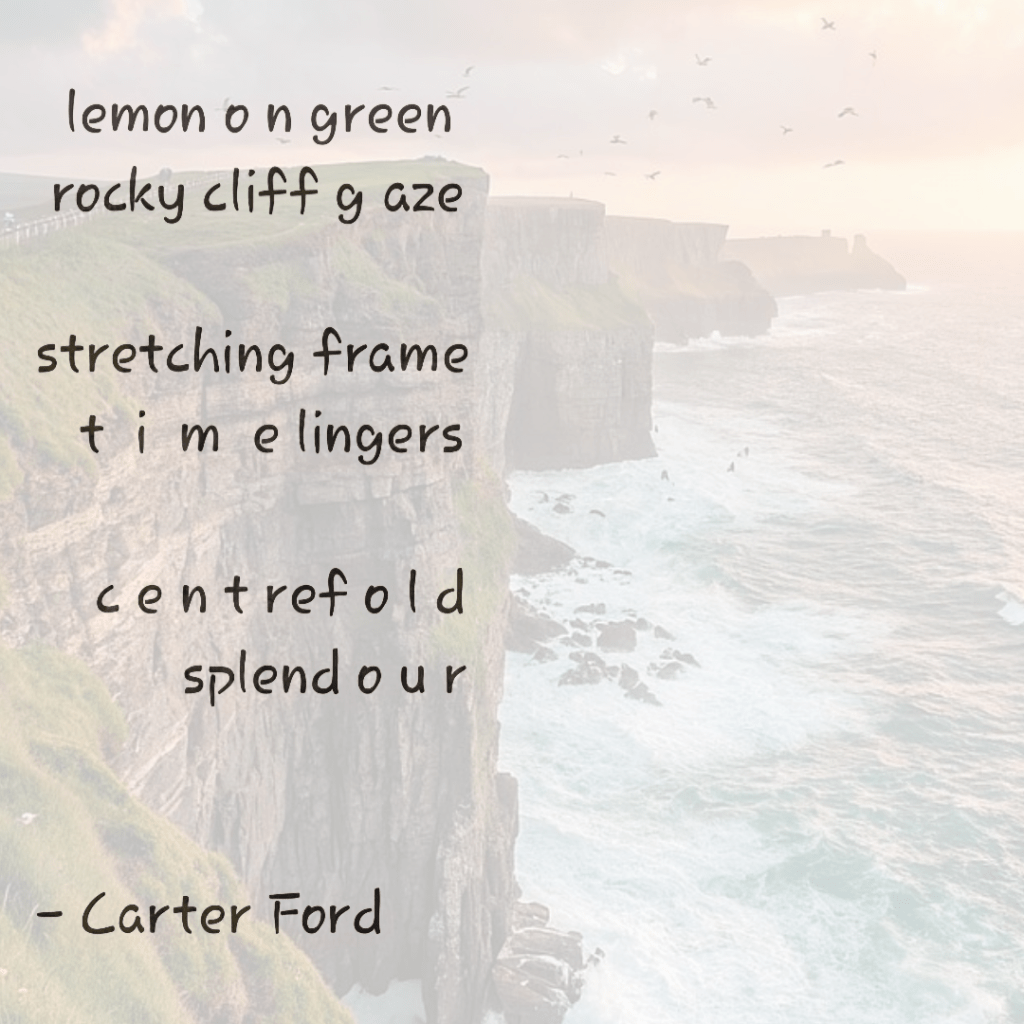 lemon o n green
rocky cliff g aze
stretching frame
t i m e lingers
c e n t ref o l d
splend o u r
- Carter Ford